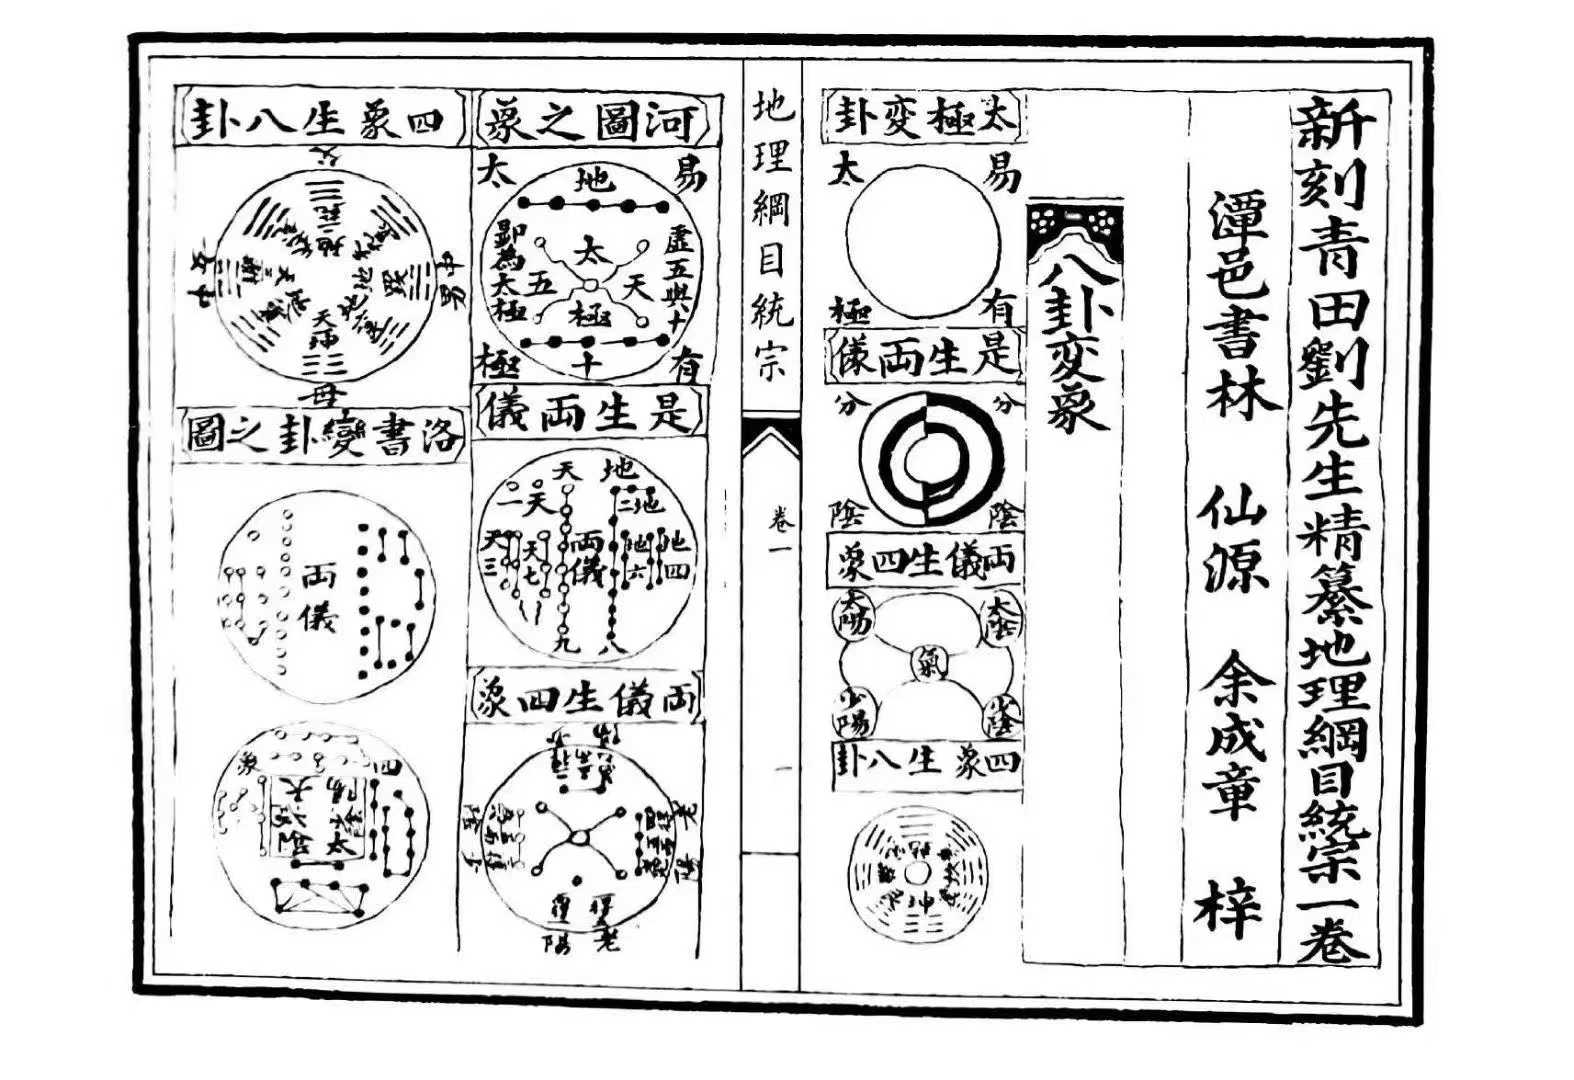 新刻青田劉先生精纂地理綱目統宗一卷
潭邑書林 仙源 余成章 梓
八卦变象
太極变卦
易有太極
是生両儀
分陰
分陰
両儀生四象
太陰
太陽
氣
少陰
少陽
四象生八卦
坤
地理綱目統宗
卷一
一
河圖之象
易有太極
地
虛五與十
即為太極
太極
天
五
十
是生両儀
天
地
天一
地二
天三
地四
両儀
地六
天七
八
九
両儀生四象
四象生八卦
父
母
中男
中女
洛書變卦之圖
両儀
四象